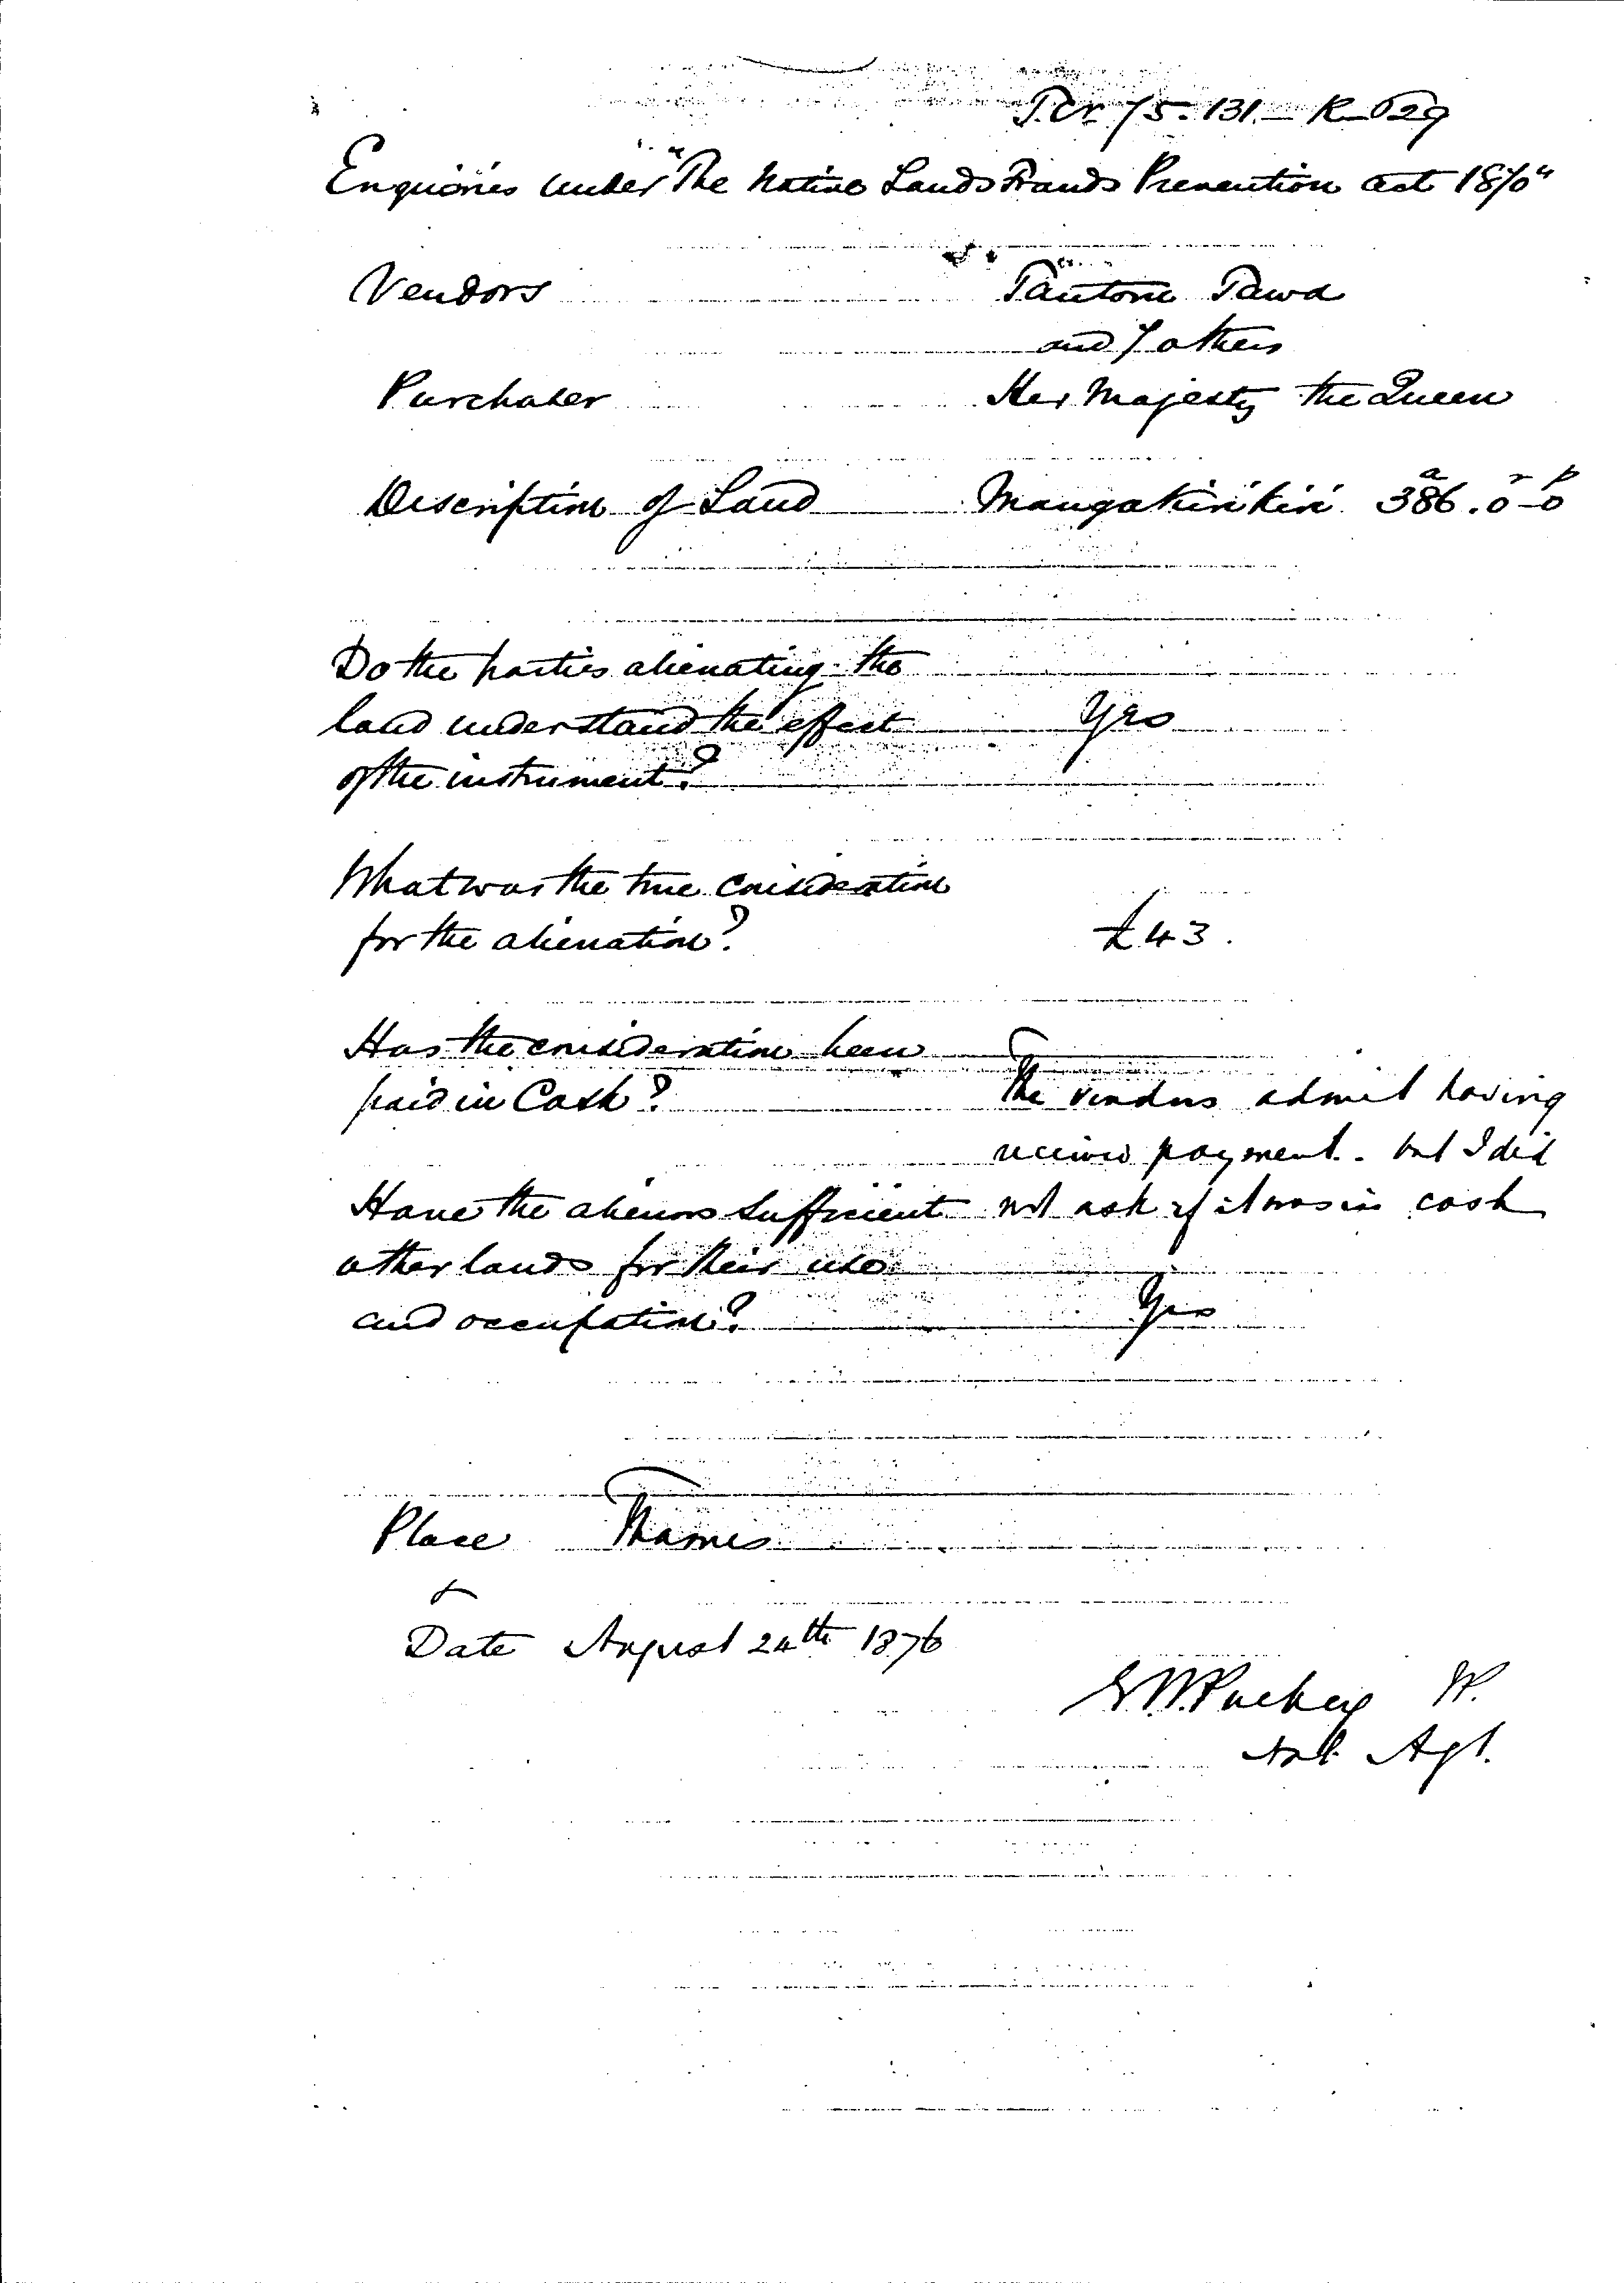 Tcr 75-131 - R 629
Enquiries under "The Native Lands Frauds Prevention Act 1870"
Vendors
and 7 others
Purchaser Her Majesty the Queen
Description of Land Mangakirikiri 386a. 0r 0p
Do the parties alienating the
land understand the effect Yes
of the instrument?
What was the true consideration
for the alienation? £43.
Has the consideration been
paid in Cash? The vendors admit having
received payment. but I did
Have the alienors sufficient not ask if it was in cash
other lands for their use
and occupation? Yes
Place Thames
&
Date August 24th 1876
E W Puckey
Nat. Agt.